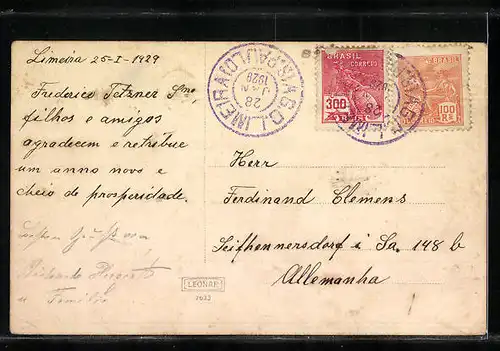 Limeira 25-I-1929
Frederico Tetzner Sno,
filhos e amigos
agradecem e retribue
um anno novo e
cheio de prosperidade.
LIMEIRA (S. PAULO)
28
JAN
1929
BRASIL
CORREIO
300
RÉIS
BRASIL
100
RS
Herr
Ferdinand Clemens
Seifhennersdorf i Sa. 148 b
Allemanha
LEONAR
7633